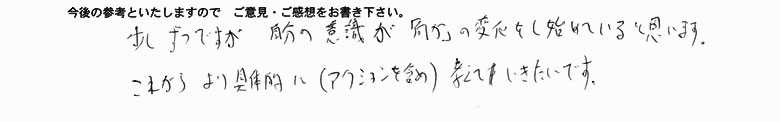 今後の参考といたしますので　ご意見・ご感想をお書き下さい。
少しずつですが　自分の意識が「何か」の変化をし始めていると思います。
これから より具体的に（アクションを含め）考えていきたいです。